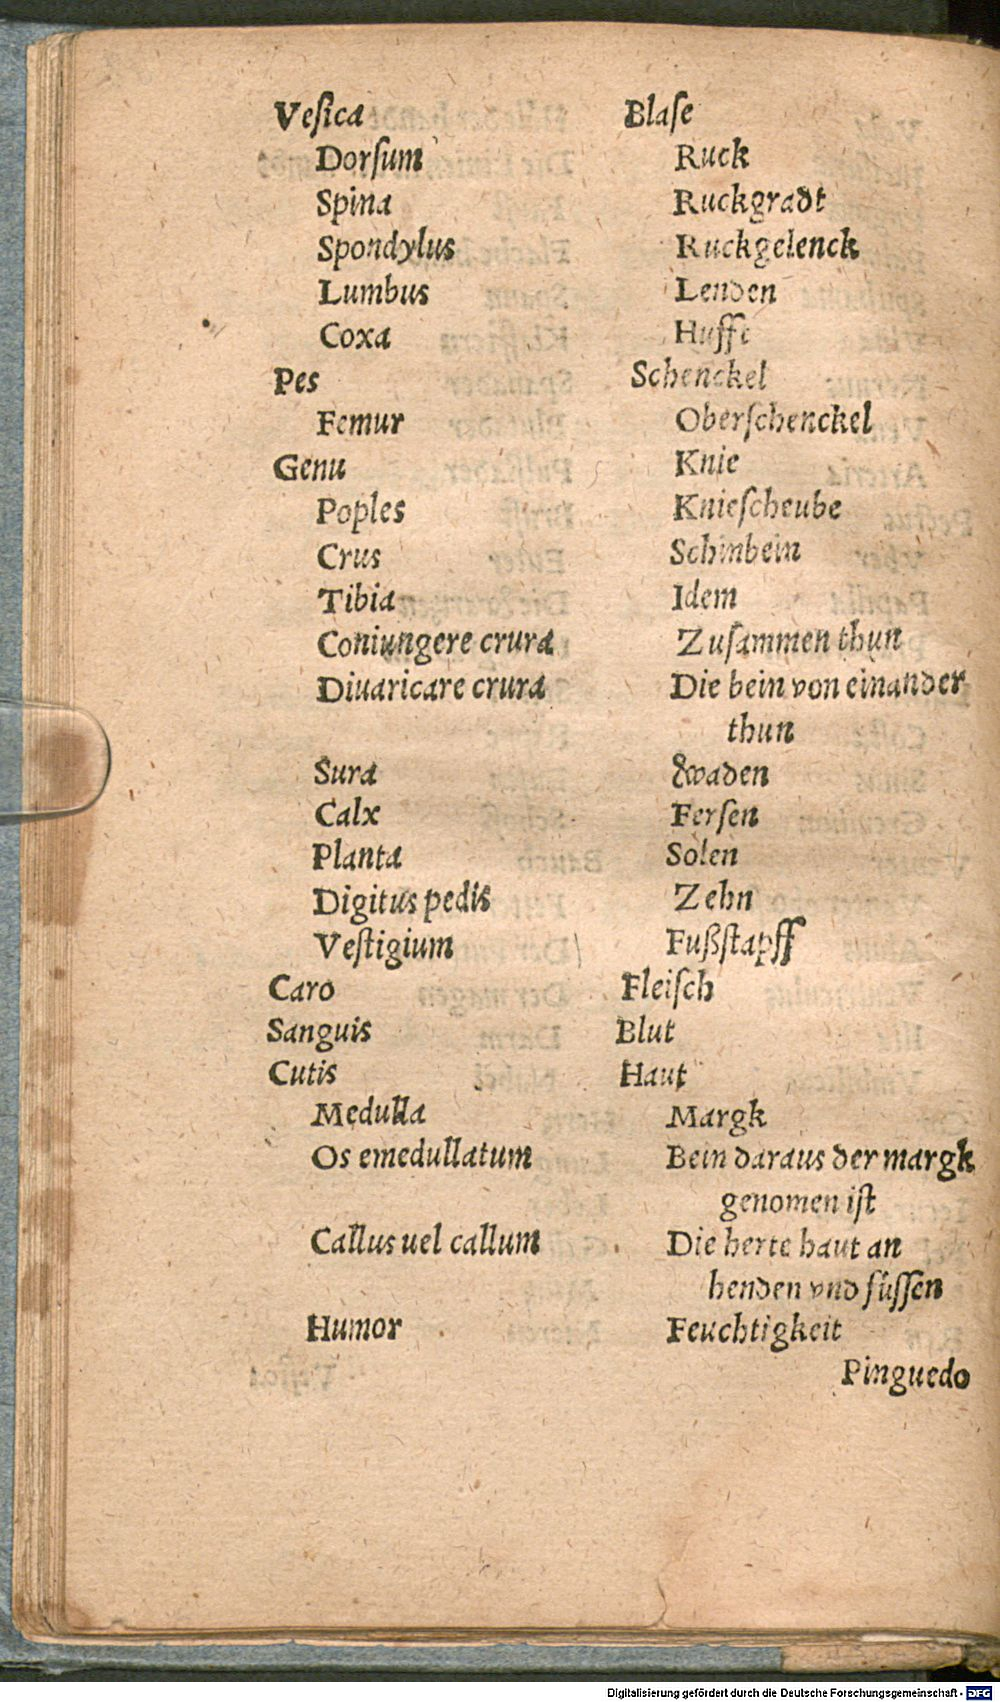 Veſica Blaſe
Dorſum Ruck
Spina Ruckgradt
Spondylus Ruckgelenck
Lumbus Lenden
Coxa Huffe
Pes Schenckel
Femur Oberſchenckel
Genu Knie
Poples Knieſcheube
Crus Schinbein
Tibia Idem
Coniungere crura Zuſammen thun
Diuaricare crura Die bein von einander
thun
Sura Waden
Calx Ferſen
Planta Solen
Digitus pedis Zehn
Veſtigium Fußſtapff
Caro Fleiſch
Sanguis Blut
Cutis Haut
Medulla Margk
Os emedullatum Bein daraus der margk
genomen iſt
Callus uel callum Die herte haut an
henden vnd füſſen
Humor Feuchtigkeit
Pinguedo
Digitalisierung gefördert durch die Deutsche Forschungsgemeinschaft - DFG